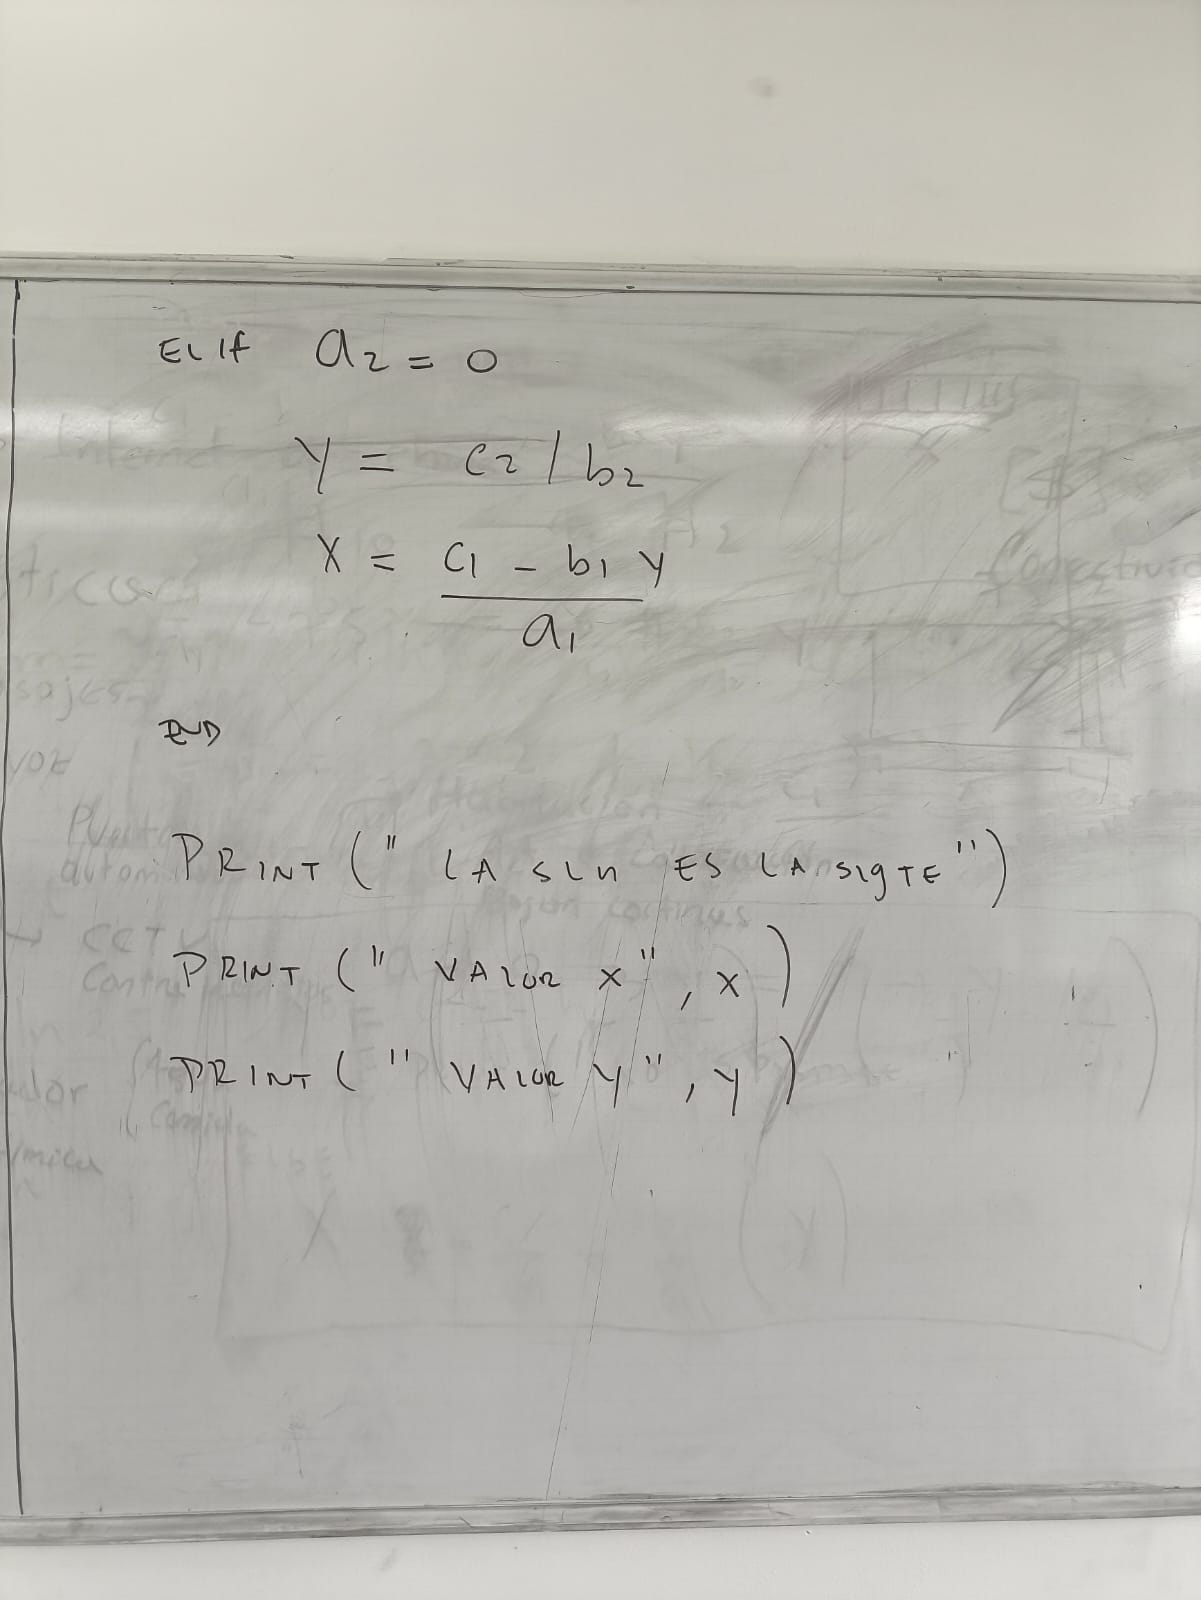 ELIF a2 = 0
Y = C2 / b2
X = C1 - b1 Y
a1
END
PRINT (" LA SLN ES LA SIGTE")
PRINT (" VALOR X", X)
PRINT (" VALOR Y", Y)